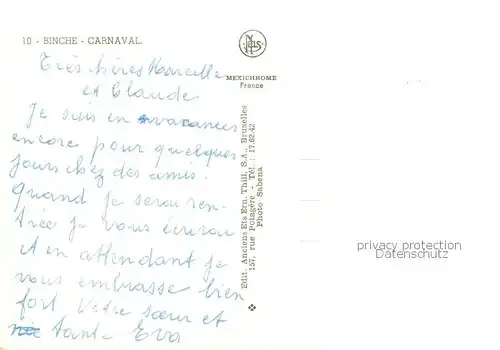 10 - BINCHE - CARNAVAL.
Très chères Marcelle
et Claude
Je suis en vacances
encore pour quelques
jours chez des amis.
Quand je serai ren-
trée je vous écrirai
et en attendant je
vous embrasse bien
fort Votre sœur et
tante Eva
Nels
MEXICHROME
France
Edit. Anciens Ets Ern. Thill, S.A., Bruxelles
157, rue Potagère - Tél.: 17.62.42
Photo Sabena
privacy protection
Datenschutz